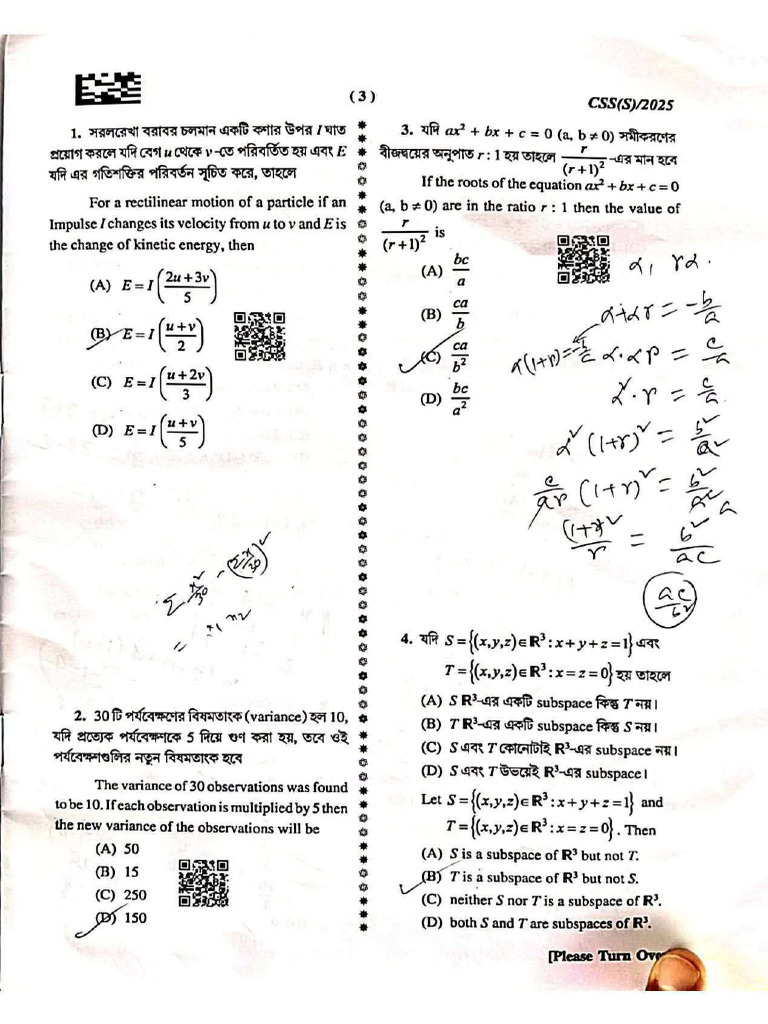 ( 3 )
CSS(S)/2025
1. সরলরেখা বরাবর চলমান একটি কণার উপর I ঘাত
প্রয়োগ করলে যদি বেগ u থেকে v -তে পরিবর্তিত হয় এবং E
যদি এর গতিশক্তির পরিবর্তন সূচিত করে, তাহলে
For a rectilinear motion of a particle if an
Impulse I changes its velocity from u to v and E is
the change of kinetic energy, then
(A) E = I((2u + 3v)/5)
(B) E = I((u + v)/2)
(C) E = I((u + 2v)/3)
(D) E = I((u + v)/5)
2. 30 টি পর্যবেক্ষণের বিষমতাংক (variance) হল 10,
যদি প্রত্যেক পর্যবেক্ষণকে 5 দিয়ে গুণ করা হয়, তবে ওই
পর্যবেক্ষণগুলির নতুন বিষমতাংক হবে
The variance of 30 observations was found
to be 10. If each observation is multiplied by 5 then
the new variance of the observations will be
(A) 50
(B) 15
(C) 250
(D) 150
3. যদি ax² + bx + c = 0 (a, b ≠ 0) সমীকরণের
বীজদ্বয়ের অনুপাত r : 1 হয় তাহলে r/(r + 1)² -এর মান হবে
If the roots of the equation ax² + bx + c = 0
(a, b ≠ 0) are in the ratio r : 1 then the value of
r/(r + 1)² is
(A) bc/a
(B) ca/b
(C) ca/b²
(D) bc/a²
α, rα.
α + αr = -b/a
α·αr = c/a
α²·r = c/a
α²(1+r)² = b²/a²
c/ar (1+r)² = b²/a²
(1+r)²/r = b²/ac
ac/b²
4. যদি S = {(x,y,z)∈R³ : x + y + z = 1} এবং
T = {(x,y,z)∈R³ : x = z = 0} হয় তাহলে
(A) S R³-এর একটি subspace কিন্তু T নয়।
(B) T R³-এর একটি subspace কিন্তু S নয়।
(C) S এবং T কোনোটাই R³-এর subspace নয়।
(D) S এবং T উভয়েই R³-এর subspace।
Let S = {(x,y,z)∈R³ : x + y + z = 1} and
T = {(x,y,z)∈R³ : x = z = 0}. Then
(A) S is a subspace of R³ but not T.
(B) T is a subspace of R³ but not S.
(C) neither S nor T is a subspace of R³.
(D) both S and T are subspaces of R³.
[Please Turn Ove